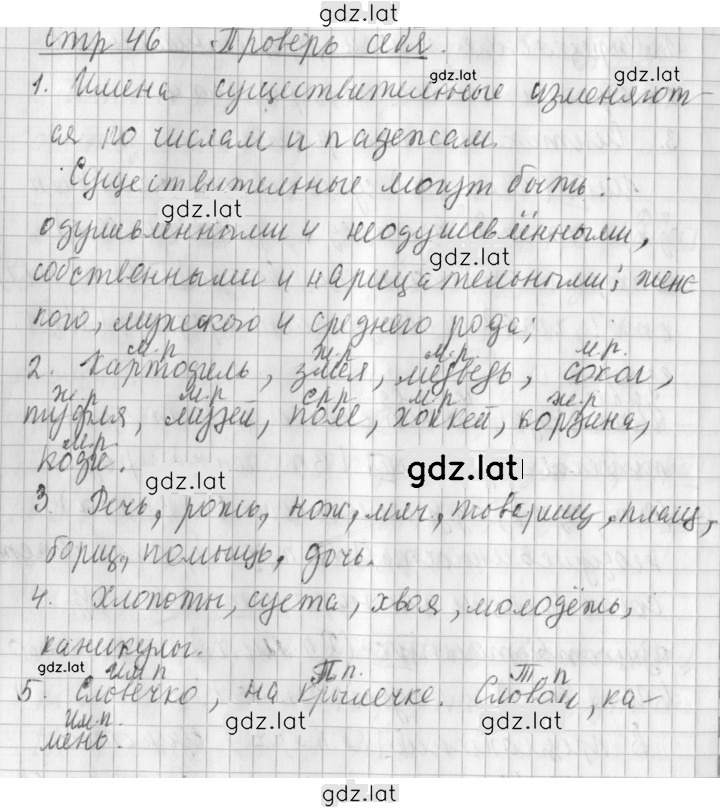 gdz.lat
стр 46 Проверь себя.
gdz.lat gdz.lat
1. Имена существительные изменяют-
ся по числам и падежам.
Существительные могут быть:
gdz.lat
одушевлёнными и неодушевлёнными,
gdz.lat
собственными и нарицательными; женс
кого, мужского и среднего рода;
м.р ж.р м.р. м.р.
2. Картофель, змея, медведь, сокол,
ж.р м.р ср.р м.р ж.р
туфля, музей, поле, хоккей, корзина,
м.р
кофе.
gdz.lat gdz.lat
3. Речь, рожь, нож, мяч, товарищ, плащ,
борщ, помощь, дочь.
4. Хлопоты, суета, хвоя, молодёжь,
каникулы.
gdz.lat им п П п. Т п
5. Словечко, на крылечке. Словом, ка-
им.п. gdz.lat gdz.lat
мень.
gdz.lat